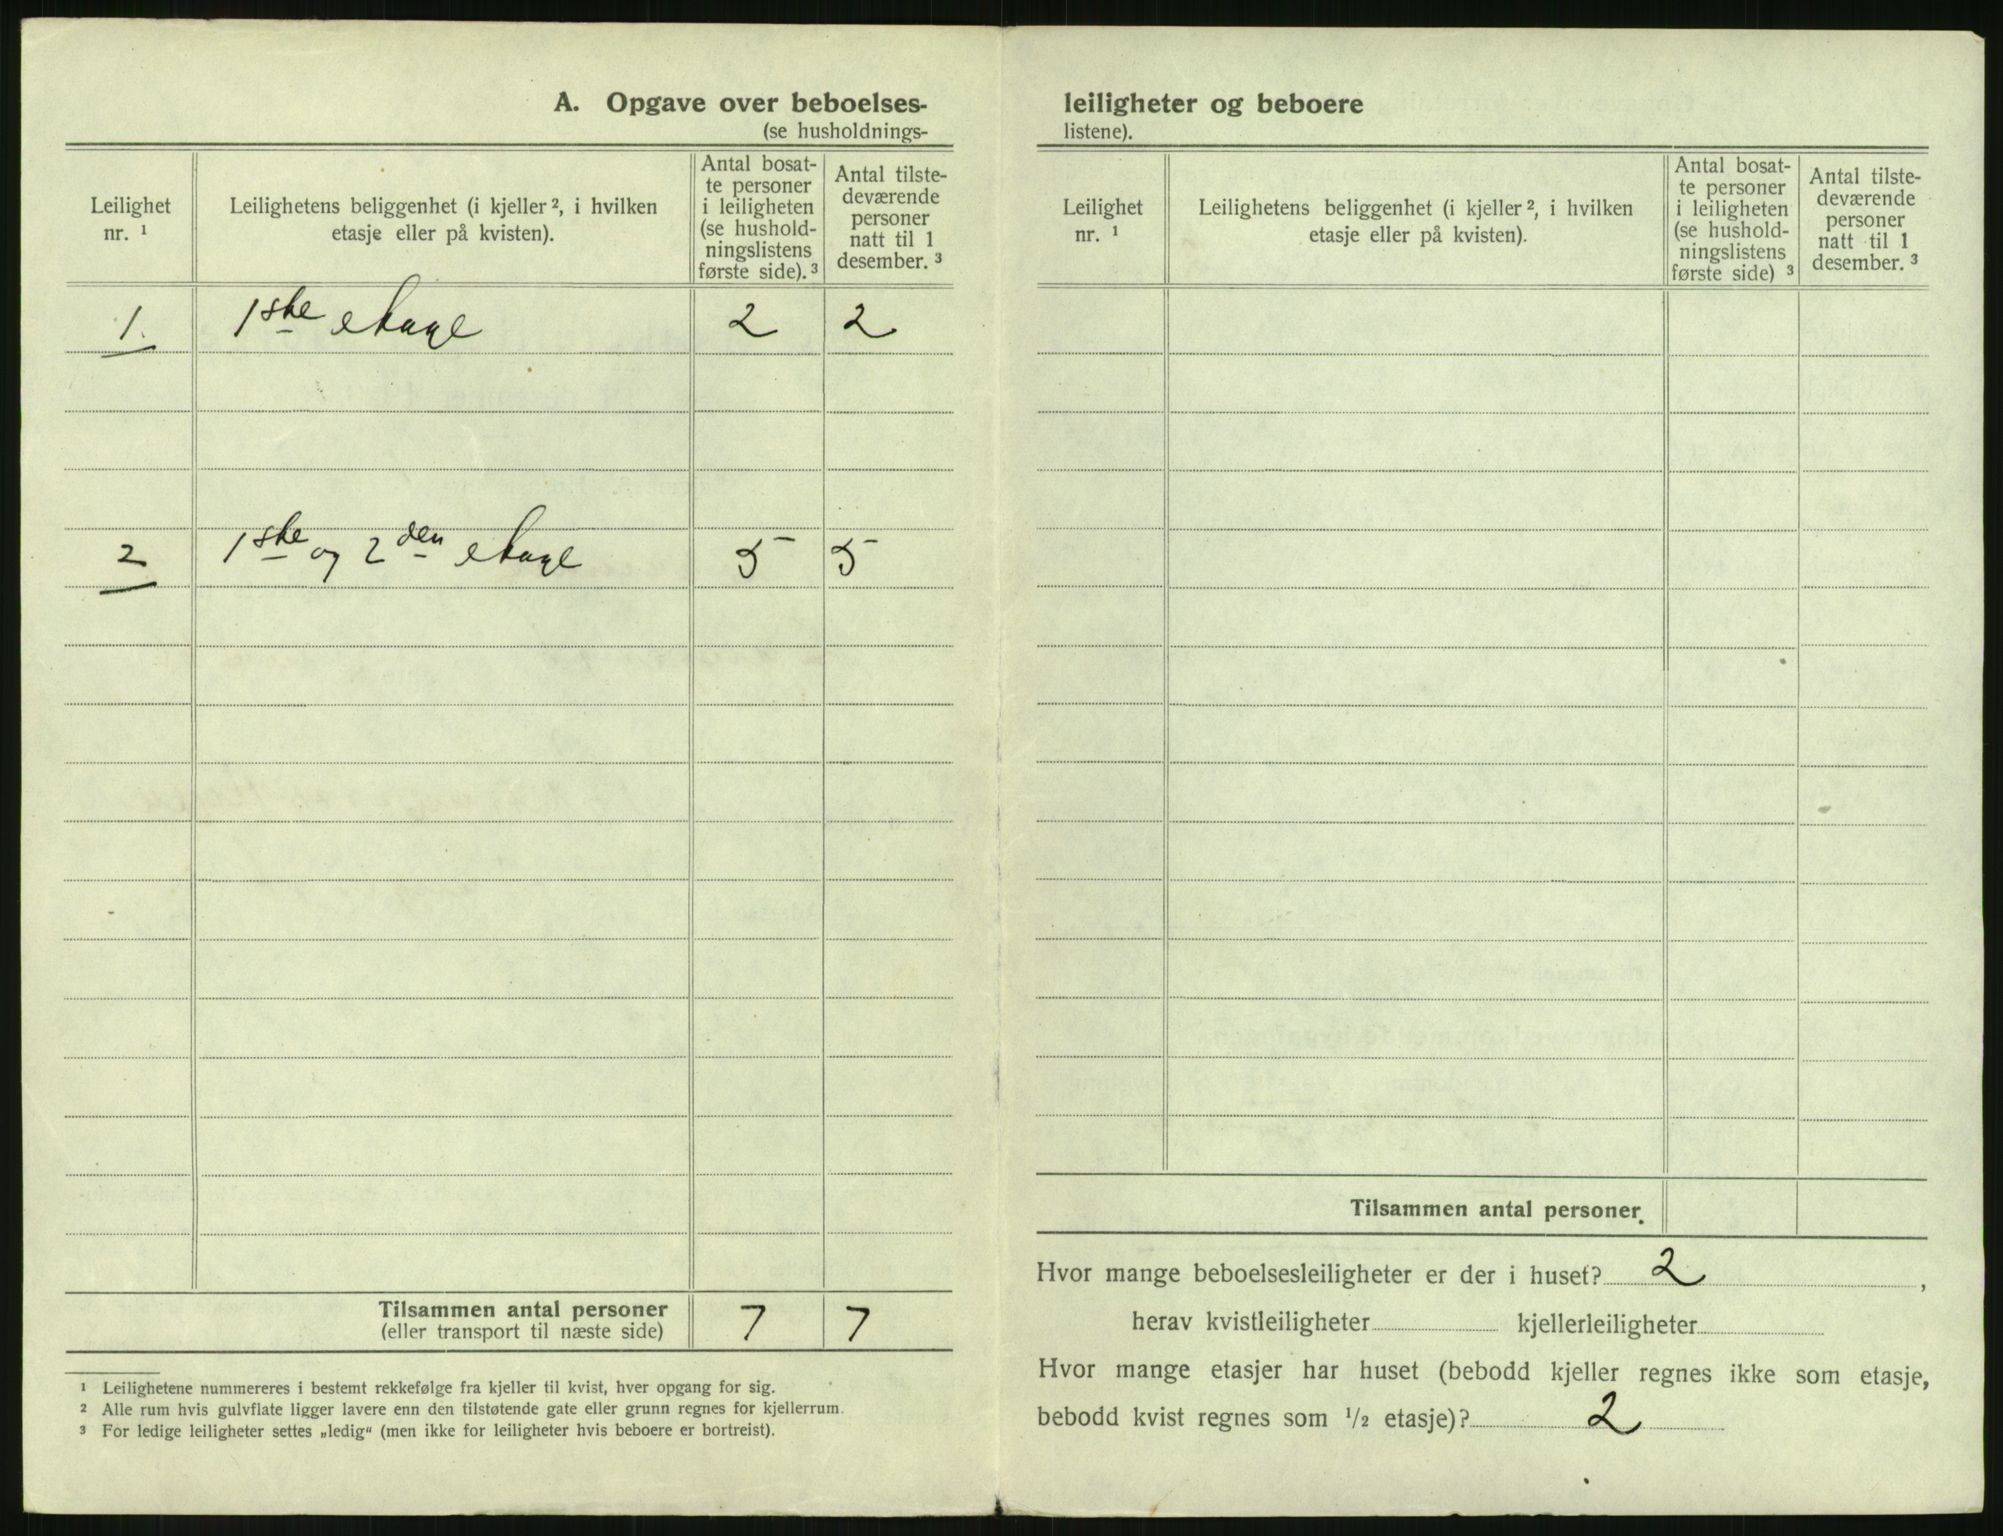 A. Opgave over beboelses-
(se husholdnings-
Leilighet nr. ¹
Leilighetens beliggenhet (i kjeller ², i hvilken
etasje eller på kvisten).
Antal bosat-
te personer
i leiligheten
(se hushold-
ningslistens
første side). ³
Antal tilste-
deværende
personer
natt til 1
desember. ³
1. 1ste etage 2 2
2 1ste og 2den etage 5 5
Tilsammen antal personer 7 7
(eller transport til næste side)
¹ Leilighetene nummereres i bestemt rekkefølge fra kjeller til kvist, hver opgang for sig.
² Alle rum hvis gulvflate ligger lavere enn den tilstøtende gate eller grunn regnes for kjellerrum.
³ For ledige leiligheter settes „ledig“ (men ikke for leiligheter hvis beboere er bortreist).
leiligheter og beboere
listene).
Leilighet
nr. ¹
Leilighetens beliggenhet (i kjeller ², i hvilken
etasje eller på kvisten).
Antal bosat-
te personer
i leiligheten
(se hushold-
ningslistens
første side) ³
Antal tilste-
deværende
personer
natt til 1
desember. ³
Tilsammen antal personer.
Hvor mange beboelsesleiligheter er der i huset? 2 ,
herav kvistleiligheter kjellerleiligheter
Hvor mange etasjer har huset (bebodd kjeller regnes ikke som etasje,
bebodd kvist regnes som ½ etasje)? 2